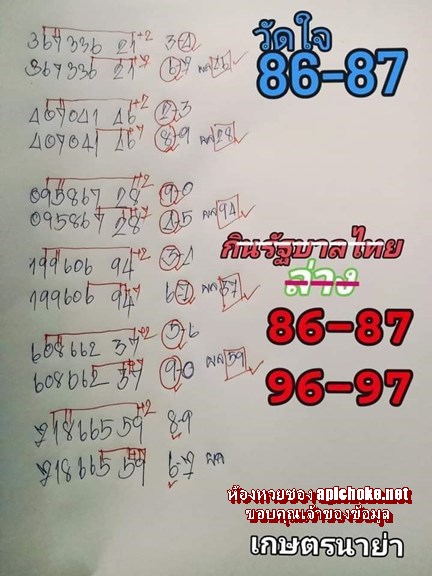 367336 21 +2 3-4
วัดใจ
367336 21 +7 6-7 ผล 26
86-87
407041 46 +2 2-3
407041 46 +7 8-9 ผล 28
095867 28 +2 9-0
095867 28 +7 4-5 ผล 94
กินรัฐบาลไทย
199606 94 +2 3-4
ล่าง
199606 94 +7 6-7 ผล 37
86-87
608662 37 +2 5-6
608662 37 +7 9-0 ผล 59
96-97
218665 59 +2 8-9
218665 59 +7 6-7 ผล
ห้องหวยซอง apichoke.net
ขอบคุณเจ้าของข้อมูล
เกษตรนาย่า